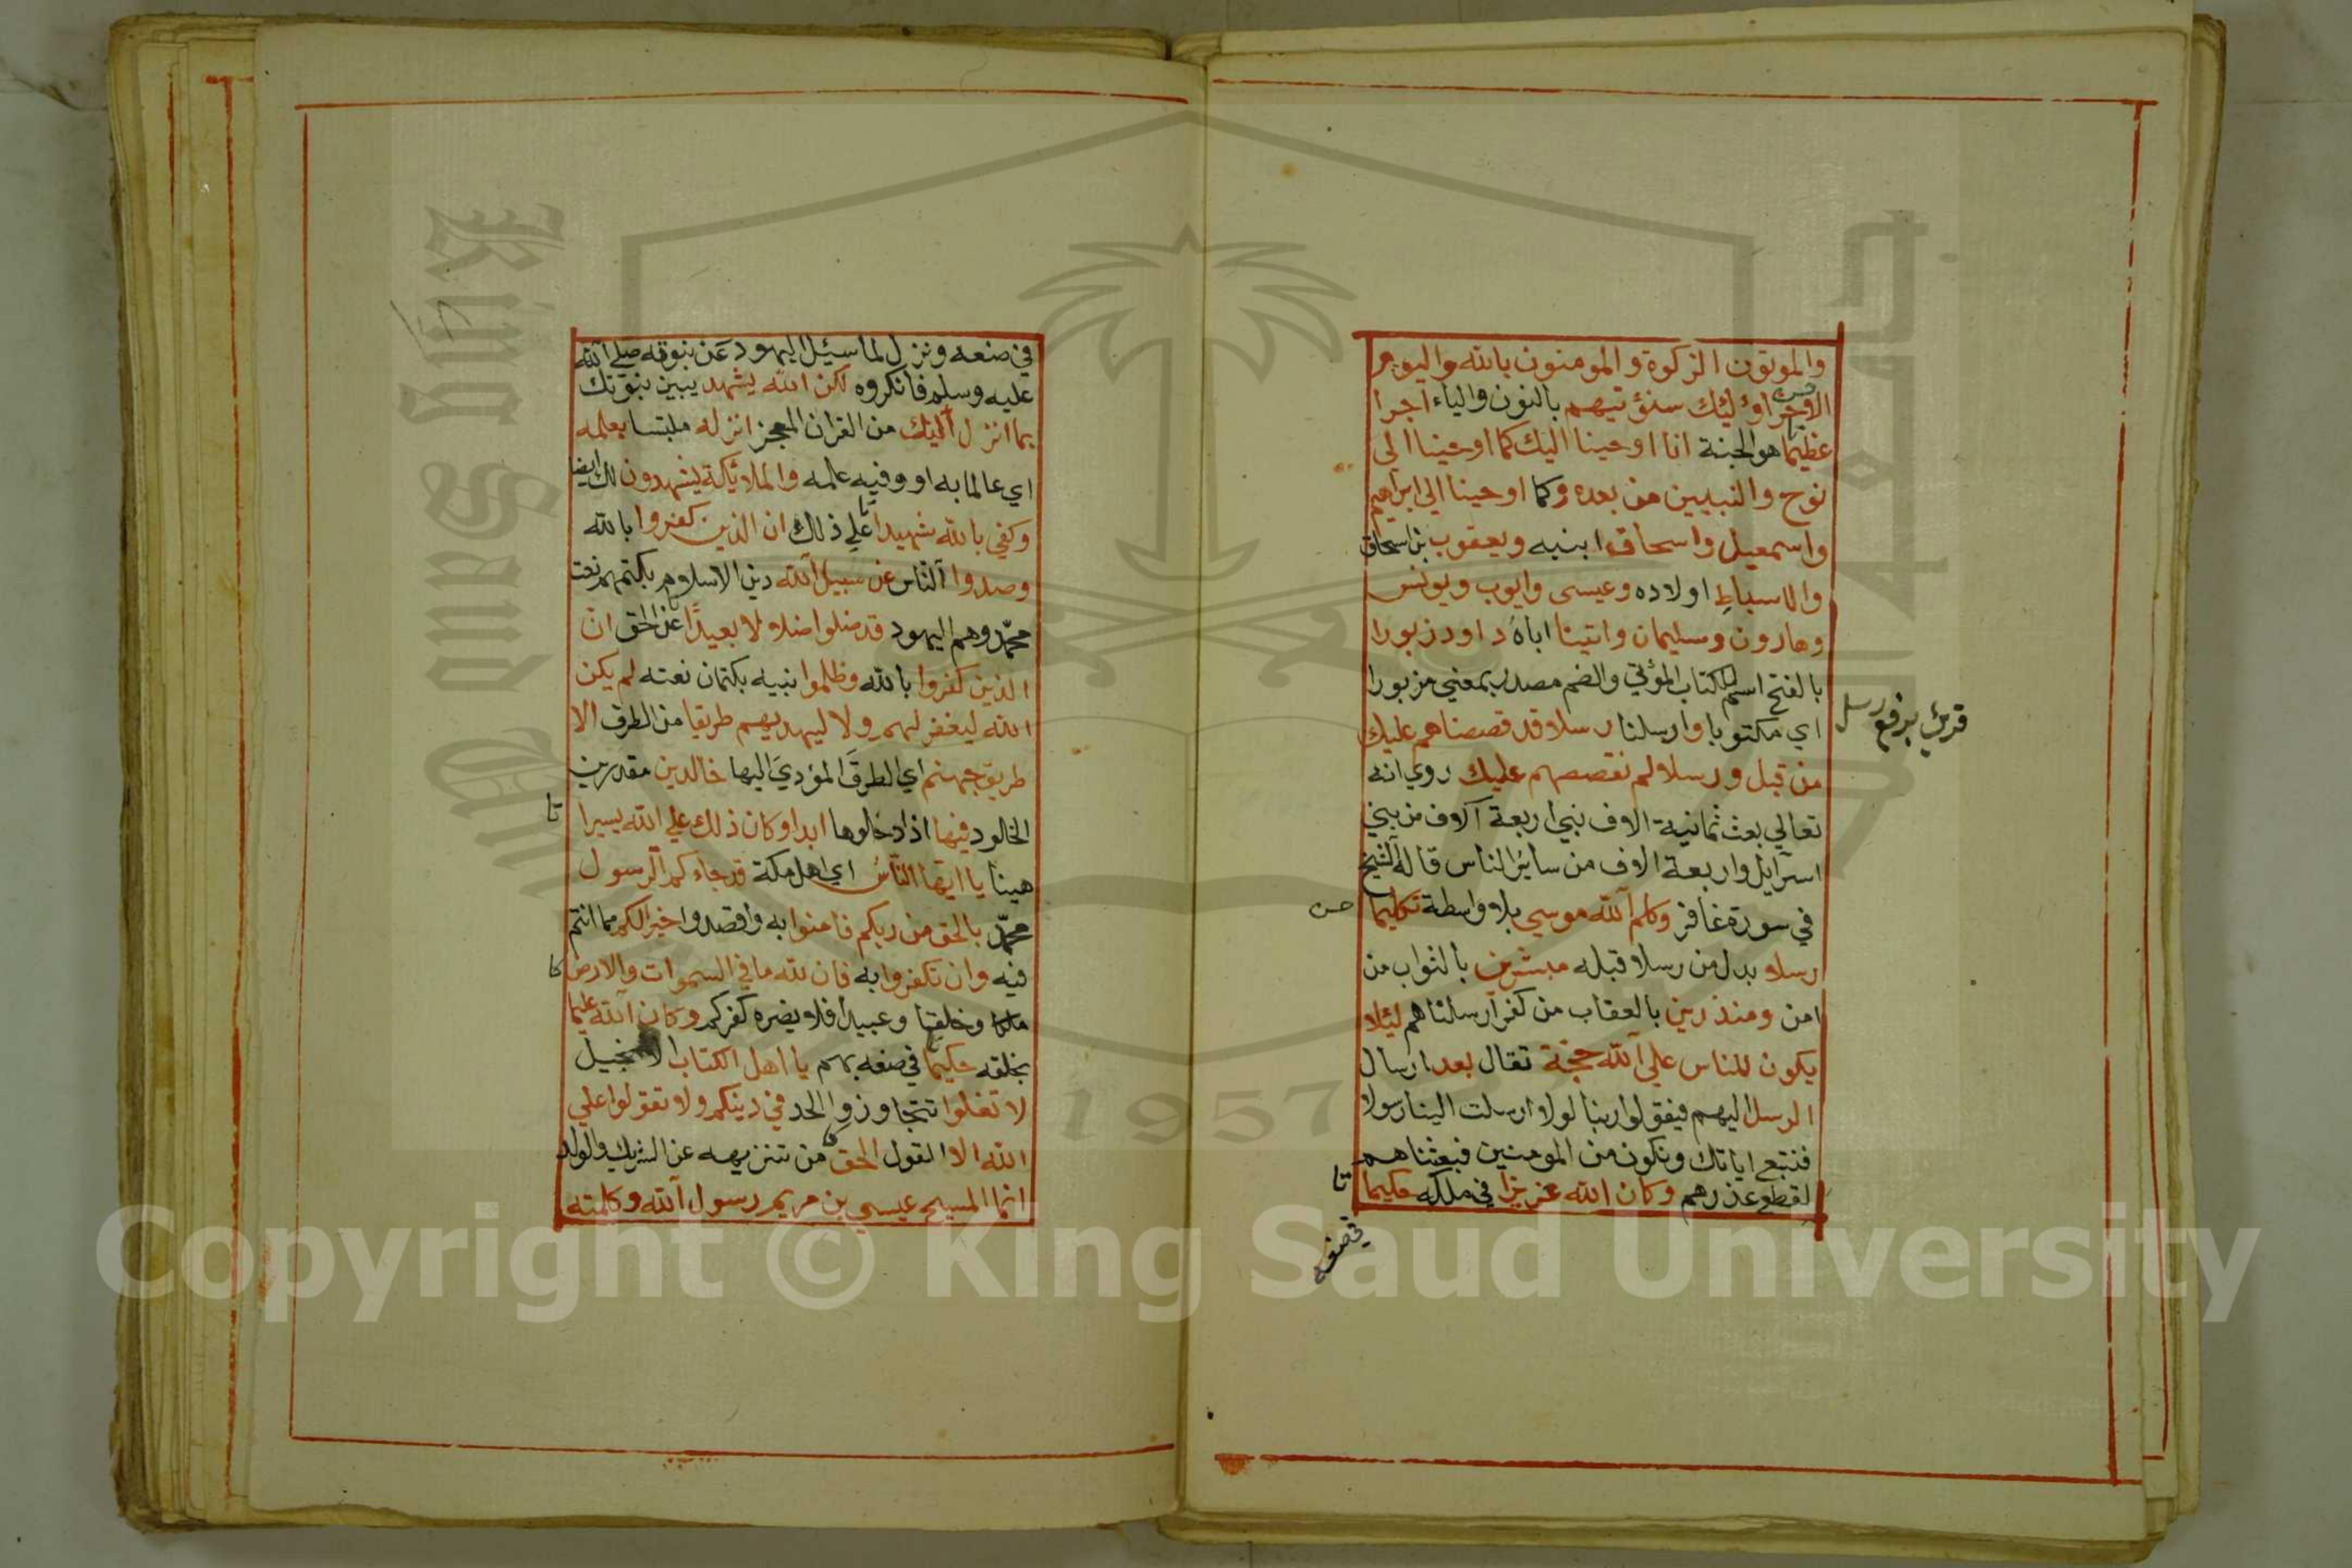 والموتون الزكوة والمومنون بالله واليوم
الاخر اولئك سنؤتيهم بالنون والياء اجرا
عظيما هو الجنة انا اوحينا اليك كما اوحينا الى
نوح والنبيين من بعده وكما اوحينا الي ابراهيم
واسمعيل واسحاق ابنيه ويعقوب بن اسحاق
والاسباط اولاده وعيسى وايوب ويونس
وهارون وسليمان واتينا اباه داود زبورا
بالفتح اسم للكتاب المؤتي والضم مصدر بمعني مزبورا
اي مكتوبا وارسلنا رسلا قد قصصناهم عليك
قرئ برفع رسل
من قبل ورسلا لم نقصصهم عليك روي انه
تعالي بعث ثمانية الاف نبي اربعة آلاف من بني
اسرآيل واربعة الاف من سائر الناس قاله الشيخ
في سورة غافر وكلم الله موسي بلا واسطة تكليما
رسلا بدل من رسلا قبله مبشرين بالثواب من
امن ومنذرين بالعقاب من كفر ارسلناهم ليلا
يكون للناس علي الله حجة تقال بعد ارسال
الرسل اليهم فيقولوا ربنا لولا ارسلت الينا رسولا
فنتبع اياتك ونكون من المومنين فبعثناهم
لقطع عذرهم وكان الله عزيزا في ملكه حكيما
تا
في صنعه
في صنعه ونزل لما سيئل اليهود عن نبوته صلي الله
عليه وسلم فانكروه لكن الله يشهد يبين نبوتك
بما انزل اليك من القران المعجز انزله ملبتسا بعلمه
اي عالما به او وفيه علمه والملائكة يشهدون لك ايضا
وكفي بالله شهيدا علي ذلك ان الذين كفروا بالله
وصدوا الناس عن سبيل الله دين الاسلام بكتمهم نعت
محمد وهم اليهود قد ضلوا ضلالا بعيدا عن الحق ان
الذين كفروا بالله وظلموا نبيه بكتمان نعته لم يكن
الله ليغفر لهم ولا ليهديهم طريقا من الطرق الا
طريق جهنم اي الطرق المؤدي اليها خالدين مقدرين
الخلود فيها اذا دخلوها ابدا وكان ذلك علي الله يسيرا
تا
هينا يا ايها الناس اي اهل مكة قد جاءكم الرسول
محمد بالحق من ربكم فامنوا به واقصدوا خيرا لكم مما انتم
فيه وان تكفروا به فان لله ما في السموات والارض
كا
ملكا وخلقا وعبيدا فلا يضره كفركم وكان الله عليما
بخلقه حكيما في صنعه بهم يا اهل الكتاب الانجيل
لا تغلوا تتجاوزوا الحد في دينكم ولا تقولوا علي
الله الا القول الحق من تنزيهه عن الشريك والولد
انما المسيح عيسي بن مريم رسول الله وكلمته
1957
Copyright © King Saud University